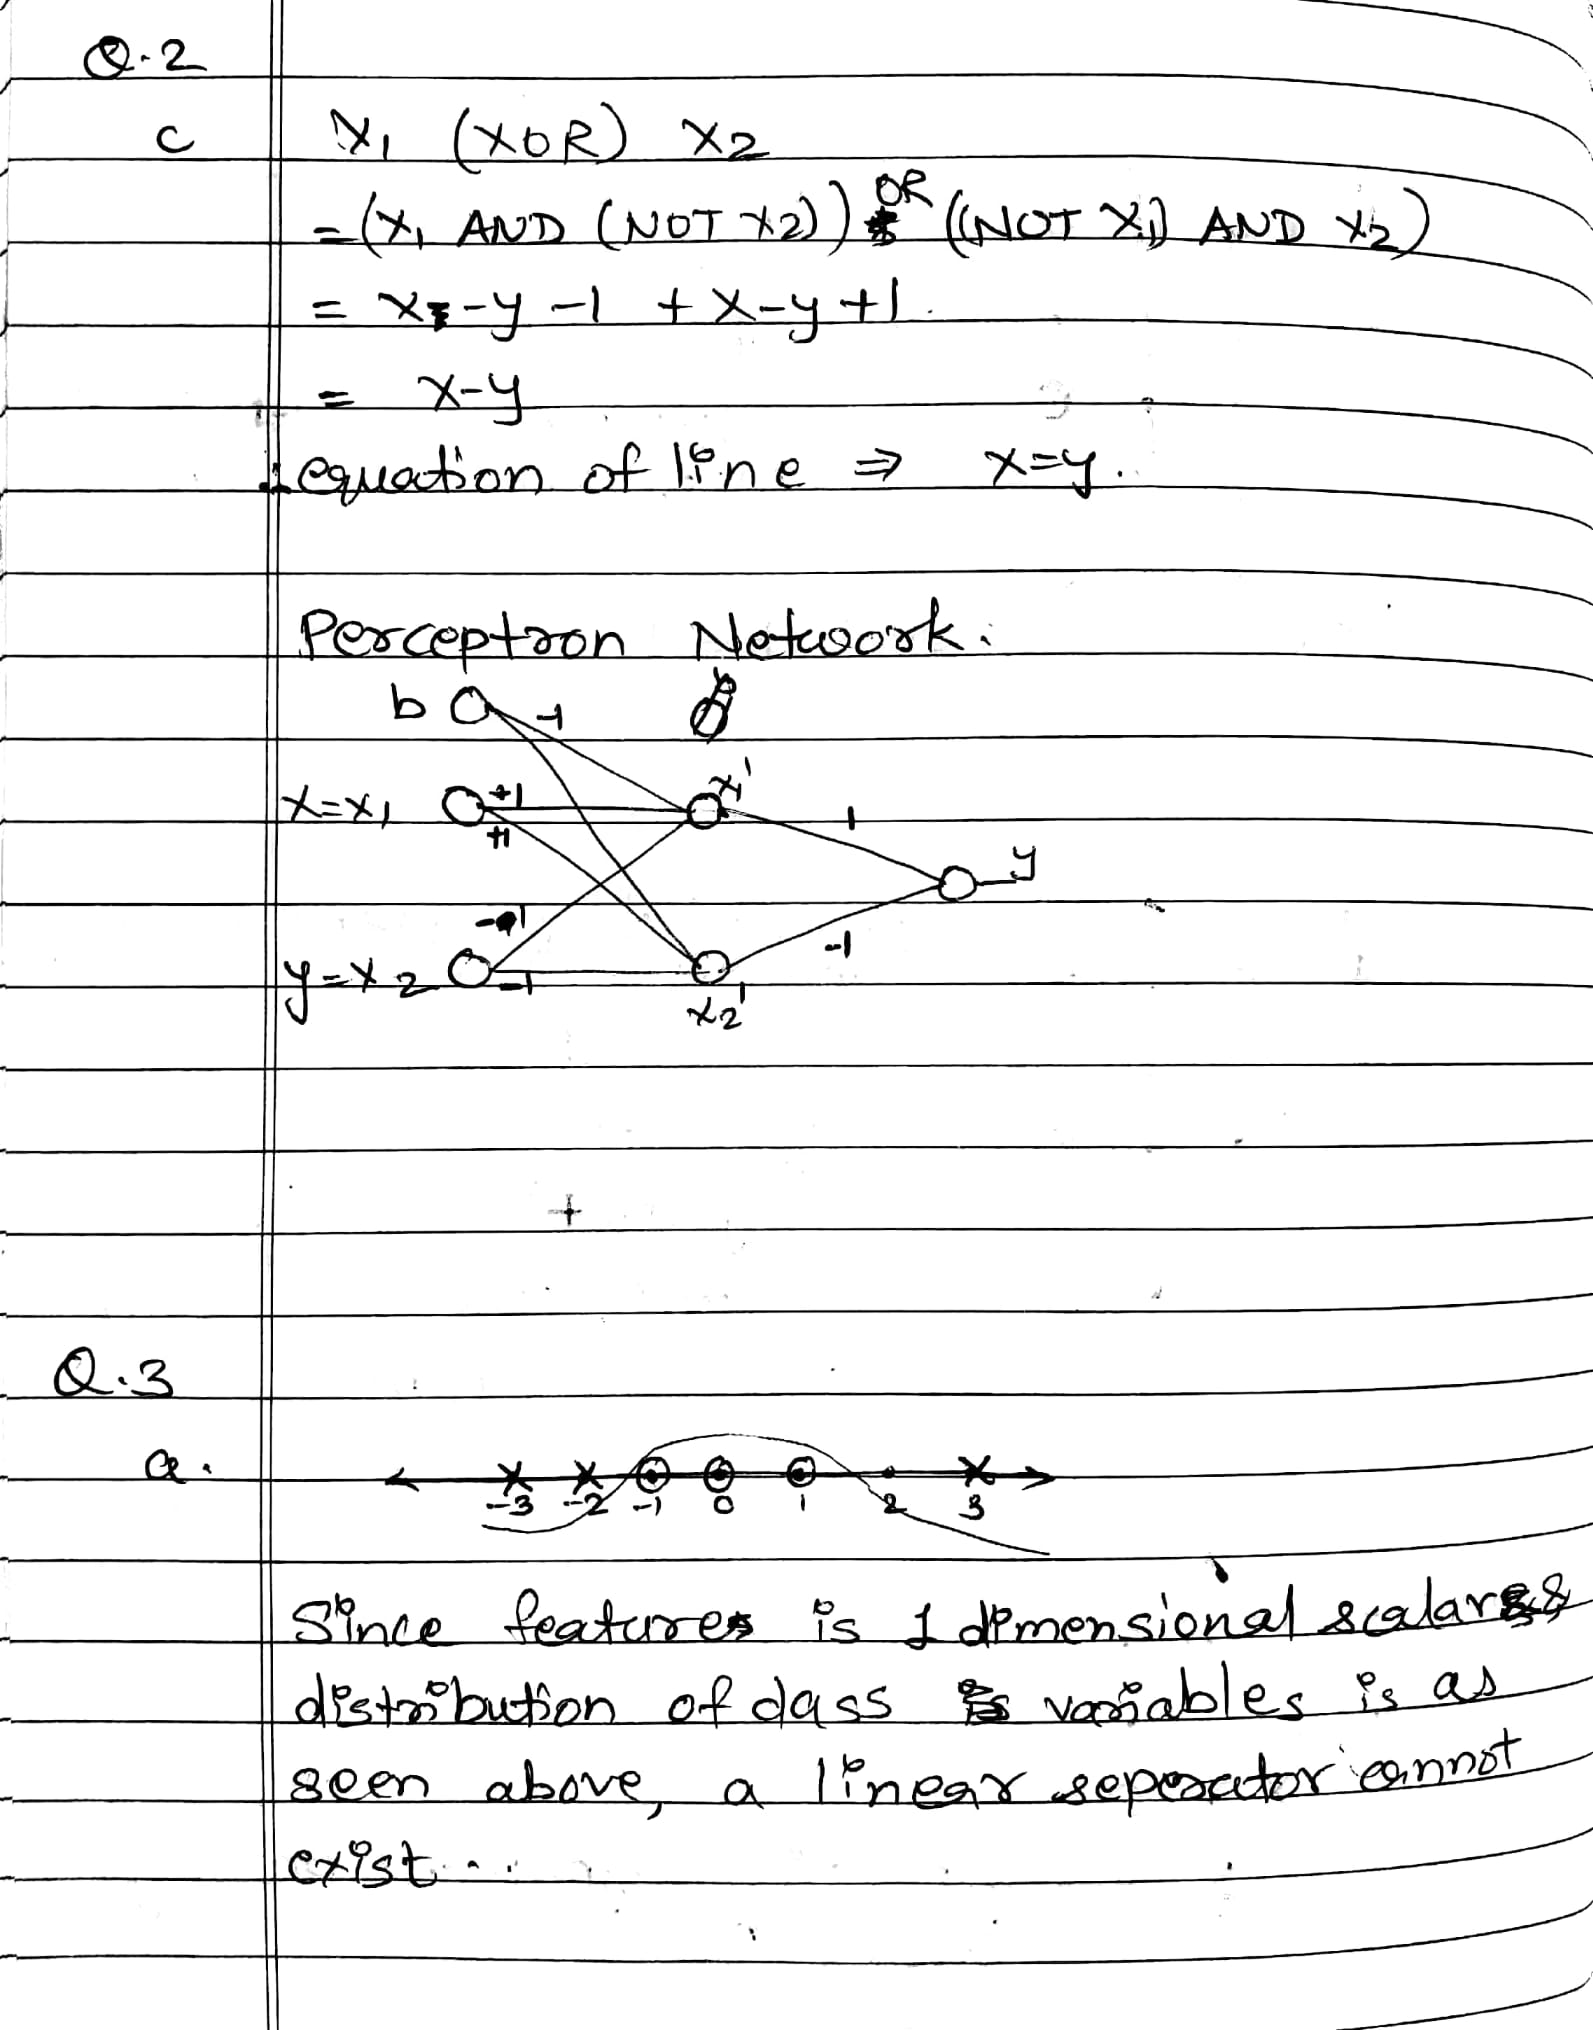 Q.2
c
X1 (XOR) X2
= (X1 AND (NOT X2)) OR ((NOT X1) AND X2)
= x-y-1 + x-y+1.
= x-y
equation of line ⇒ x=y.
Perceptron Network:
b -1
x=x1 +1 x1' 1
+1
y
-1
y=x2 -1 -1
x2'
Q.3
a.
-3 -2 -1 0 1 2 3
Since features is 1 dimensional scalar &
distribution of class variables is as
seen above, a linear seperator cannot
exist.